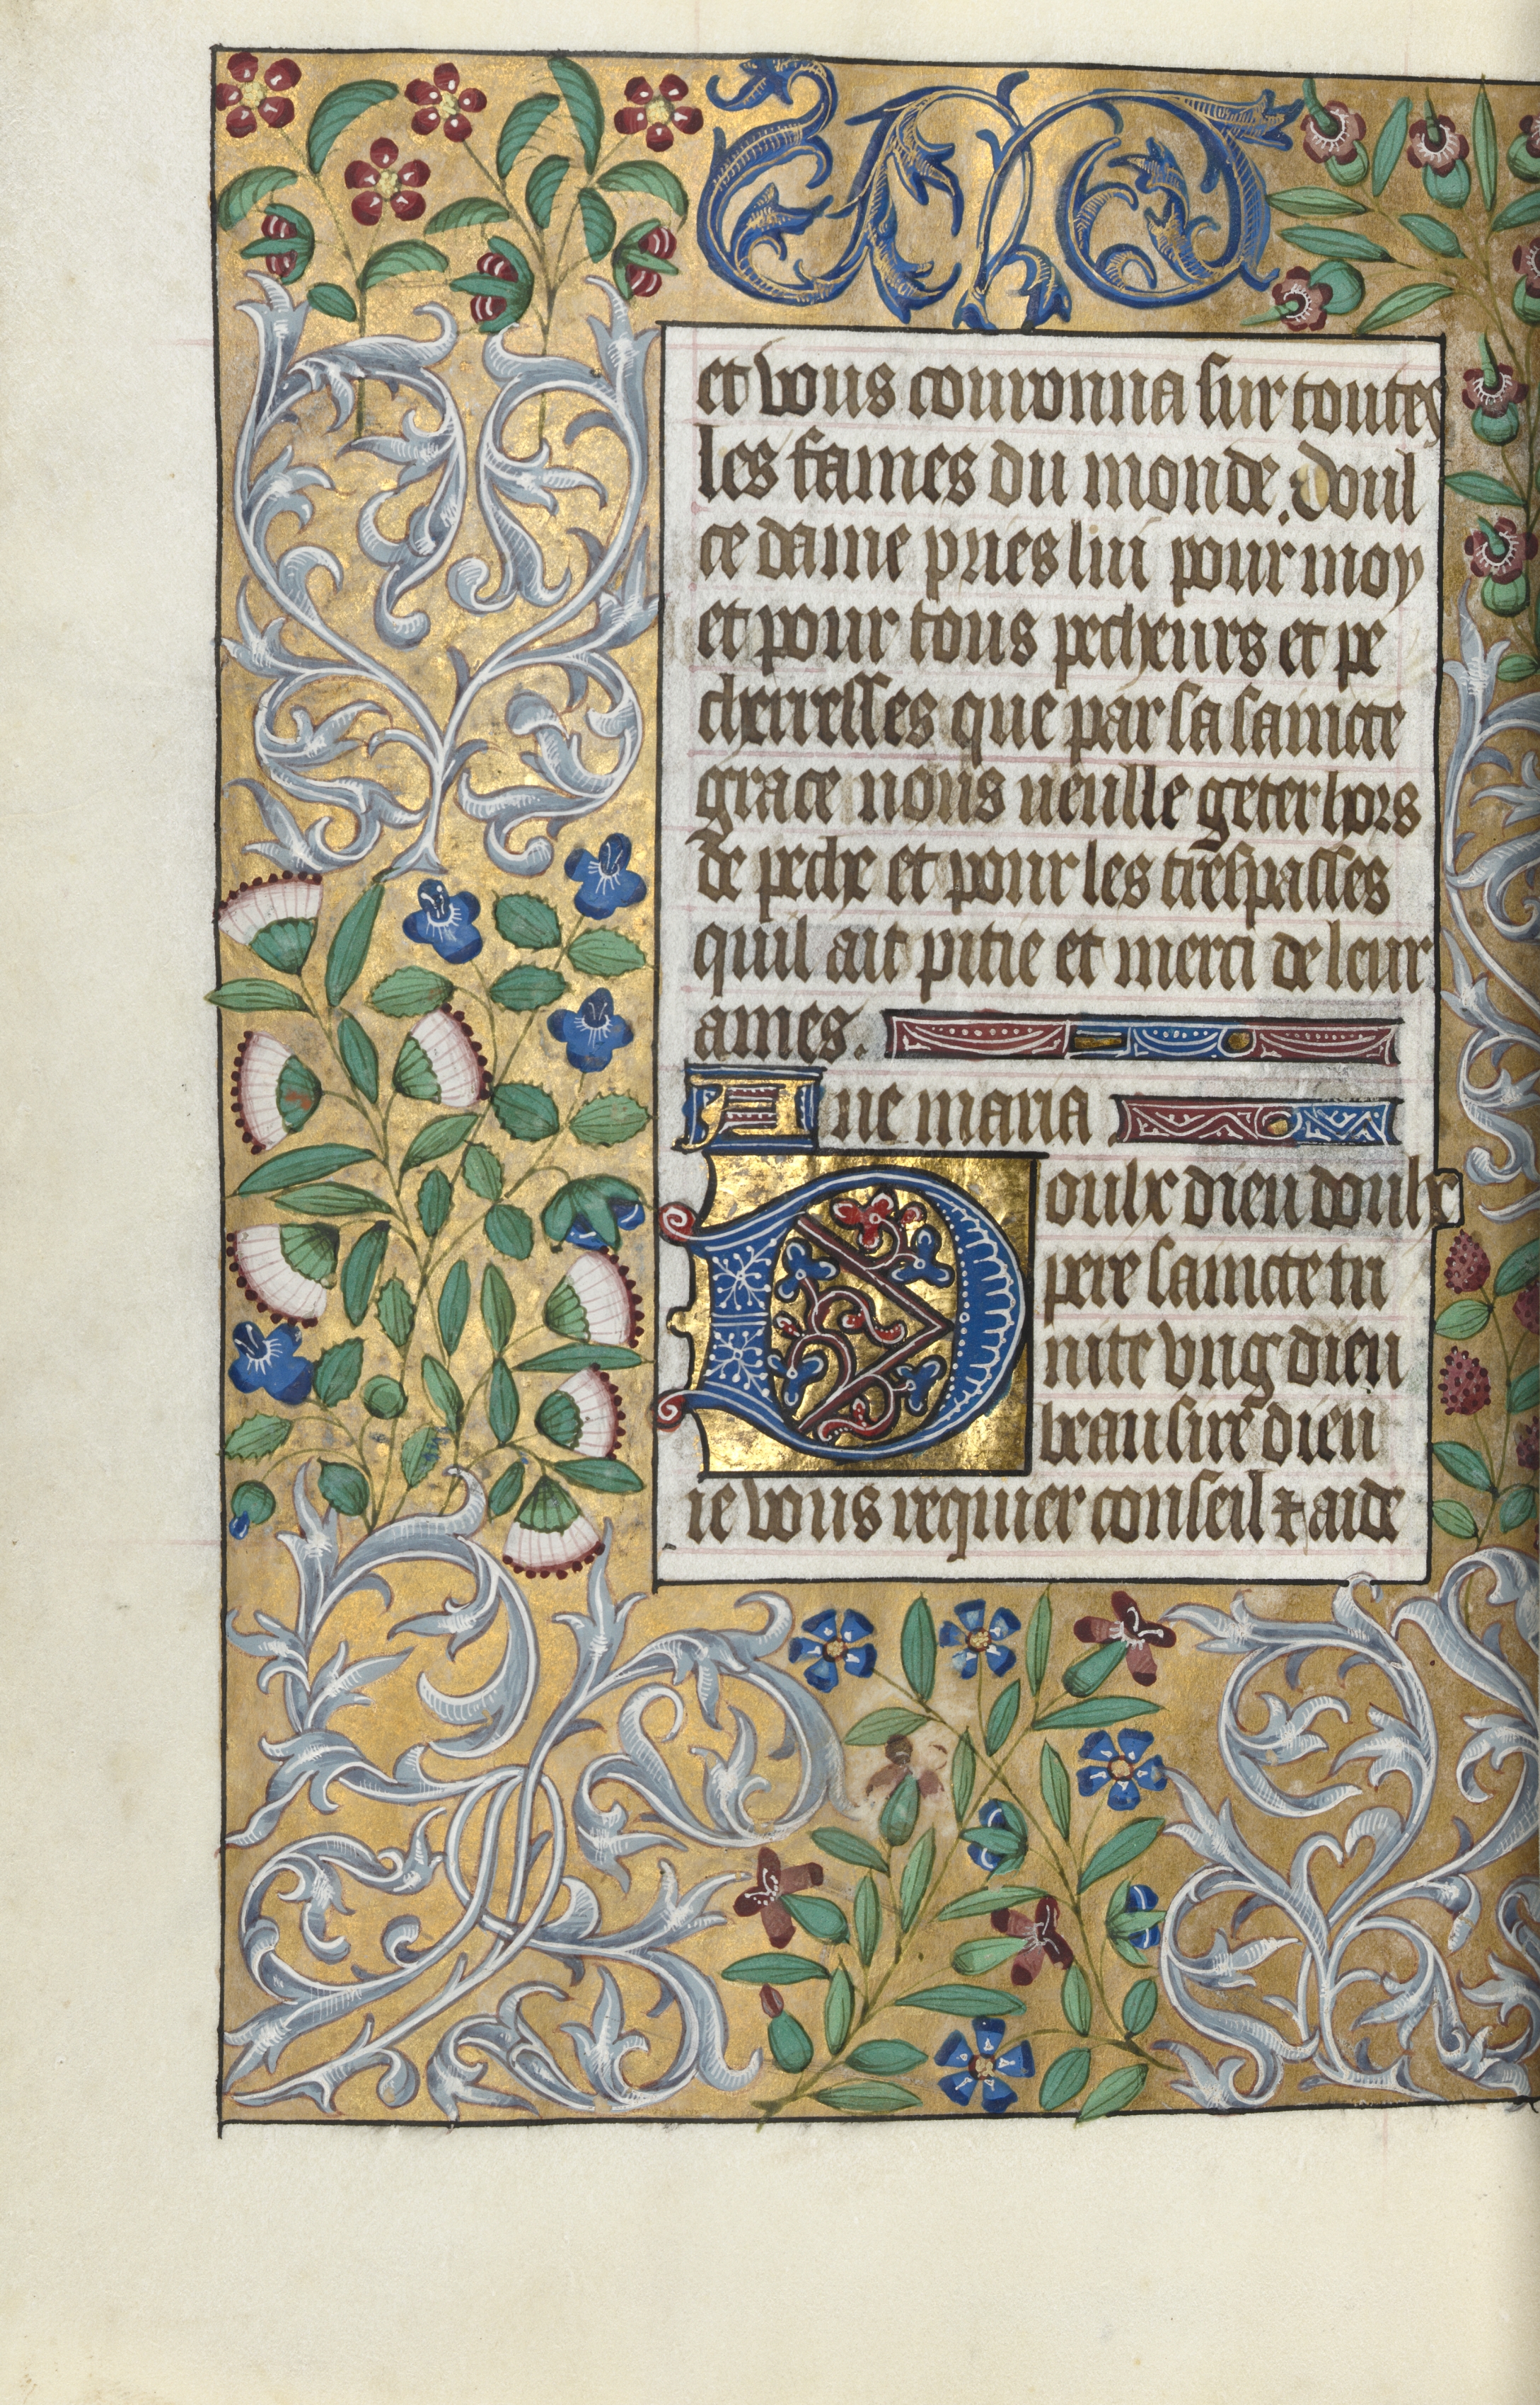 et vous couronna sur toutes
les fames du monde. Doul
ce dame pries lui pour moy
et pour tous pecheurs et pe
cherresses que par sa saincte
grace nous ueulle geter hors
de peche et pour les trespasses
quil ait pitie et merci de leur
ames.
Aue maria
Doulx dieu doulx
pere saincte tri
nite vng dieu
beau sire dieu
ie vous requier conseil ⁊ aide